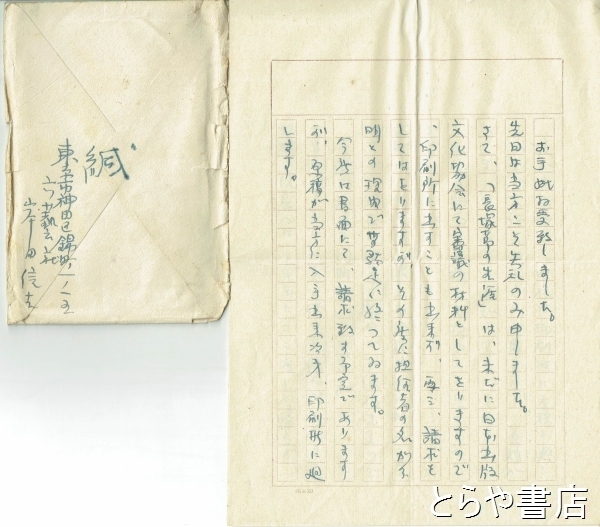 お手紙お受致しました。
先日は当方こそ失礼のみ申しました。
さて、「長塚節の生涯」は、未だに日本出版
文化協会にて審議の材料としてをりますので
、印刷所に出すことも出来ず、再三、請求を
してはをりますが、その度に担任者の名が不
明との理由で皆断定に終つてゐます。
今度は書面にて、請求致す予定であります
が、原稿が当方に入手出来次第、印刷所に廻
します。
緘
東京市神田区錦町一ノ一五
六藝社
山本田信夫
とらや書店